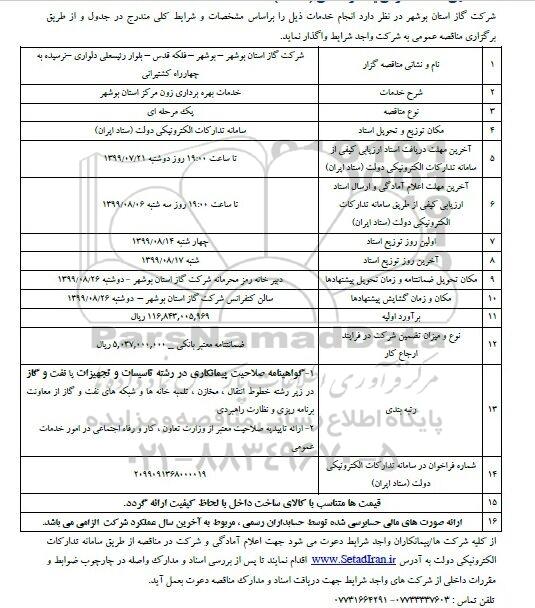 شرکت گاز استان بوشهر در نظر دارد انجام خدمات ذیل را براساس مشخصات و شرایط کلی مندرج در جدول و از طریق
برگزاری مناقصه عمومی به شرکت واجد شرایط واگذار نماید.
۱ نام و نشانی مناقصه گزار شرکت گاز استان بوشهر – بوشهر – فلکه قدس – بلوار رئیسعلی دلواری –نرسیده به
چهارراه کشتیرانی
۲ شرح خدمات خدمات بهره برداری زون مرکز استان بوشهر
۳ نوع مناقصه یک مرحله ای
۴ مکان توزیع و تحویل اسناد سامانه تدارکات الکترونیکی دولت (ستاد ایران)
۵ آخرین مهلت دریافت اسناد ارزیابی کیفی از
سامانه تدارکات الکترونیکی دولت (ستاد ایران)
تا ساعت ۱۹:۰۰ روز دوشنبه ۱۳۹۹/۰۷/۲۱
۶ آخرین مهلت اعلام آمادگی و ارسال اسناد
ارزیابی کیفی از طریق سامانه تدارکات
الکترونیکی دولت (ستاد ایران)
تا ساعت ۱۹:۰۰ روز سه شنبه ۱۳۹۹/۰۸/۰۶
۷ اولین روز توزیع اسناد چهار شنبه ۱۳۹۹/۰۸/۱۴
۸ آخرین روز توزیع اسناد شنبه ۱۳۹۹/۰۸/۱۷
۹ مکان تحویل ضمانتنامه و زمان تحویل پیشنهادها دبیر خانه رمز محرمانه شرکت گاز استان بوشهر – دوشنبه ۱۳۹۹/۰۸/۲۶
۱۰ مکان و زمان گشایش پیشنهادها سالن کنفرانس شرکت گاز استان بوشهر – دوشنبه ۱۳۹۹/۰۸/۲۶
۱۱ برآورد اولیه ۱۱۶,۸۴۳,۰۰۵,۹۶۹ ریال
۱۲ نوع و میزان تضمین شرکت در فرایند
ارجاع کار
ضمانتنامه معتبر بانکی – ۵,۰۳۷,۰۰۰,۰۰۰ ریال
۱۳ رتبه بندی
۱-گواهینامه صلاحیت پیمانکاری در رشته تاسیسات و تجهیزات یا نفت و گاز
در زیر رشته خطوط انتقال ، مخازن ، تلمبه خانه ها و شبکه های نفت و گاز از معاونت
برنامه ریزی و نظارت راهبردی
۲- ارائه تاییدیه صلاحیت معتبر از وزارت تعاون ، کار و رفاه اجتماعی در امور خدمات
عمومی
۱۴ شماره فراخوان در سامانه تدارکات الکترونیکی
دولت (ستاد ایران)
۲۰۹۹۰۹۱۳۶۸۰۰۰۰۱۹
۱۵ قیمت ها متناسب با کالای ساخت داخل با لحاظ کیفیت ارائه گردد.
۱۶ ارائه صورت های مالی حسابرسی شده توسط حسابداران رسمی ، مربوط به آخرین سال عملکرد شرکت الزامی می باشد.
از کلیه شرکت ها/پیمانکاران واجد شرایط دعوت می شود جهت اعلام آمادگی و شرکت در مناقصه از طریق سامانه تدارکات
الکترونیکی دولت به آدرس www.SetadIran.ir اقدام نمایند تا پس از بررسی اسناد و مدارک واصله در چارچوب ضوابط و
مقررات داخلی از شرکت های واجد شرایط جهت دریافت اسناد و مدارک مناقصه دعوت بعمل آید.
تلفن تماس : ۰۷۷۳۳۳۳۷۶۰۳- ۰۷۷۳۱۶۶۴۲۹۱
ParsNamadData
پایگاه اطلاع رسانی مناقصه و مزایده
۰۲۱-۸۸۳۴۹۶۷۰-۵